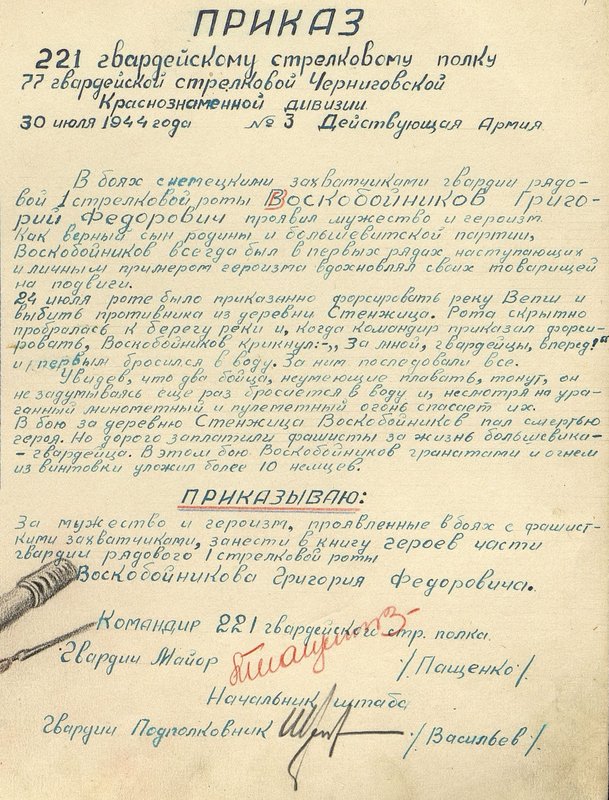 ПРИКАЗ
221 гвардейскому стрелковому полку
77 гвардейской стрелковой Черниговской
Краснознаменной дивизии
30 июля 1944 года № 3 Действующая Армия
В боях с немецкими захватчиками гвардии рядо-
вой 1 стрелковой роты Воскобойников Григо-
рий Федорович проявил мужество и героизм.
Как верный сын родины и большевитской партии,
Воскобойников всегда был в первых рядах наступающих
и личным примером героизма вдохновлял своих товарищей
на подвиги.
24 июля роте было приказанно форсировать реку Вепш и
выбить противника из деревни Стенжица. Рота скрытно
пробралась к берегу реки и, когда командир приказал форси-
ровать, Воскобойников крикнул:-„За мной, гвардейцы, вперед!"
и первым бросился в воду. За ним последовали все.
Увидев, что два бойца, неумеющие плавать, тонут, он
не задумываясь еще раз бросается в воду и, несмотря на ура-
ганный минометный и пулеметный огонь спасает их.
В бою за деревню Стенжица Воскобойников пал смертью
героя. Но дорого заплатили фашисты за жизнь большевика-
-гвардейца. В этом бою Воскобойников гранатами и огнем
из винтовки уложил более 10 немцев.
ПРИКАЗЫВАЮ:
За мужество и героизм, проявленные в боях с фашист-
кими захватчиками, занести в книгу героев части
гвардии рядового 1 стрелковой роты
Воскобойникова Григория Федоровича.
Командир 221 гвардейского стр. полка
Гвардии Майор /Пащенко/
Начальник штаба
Гвардии Подполковник /Васильев/.